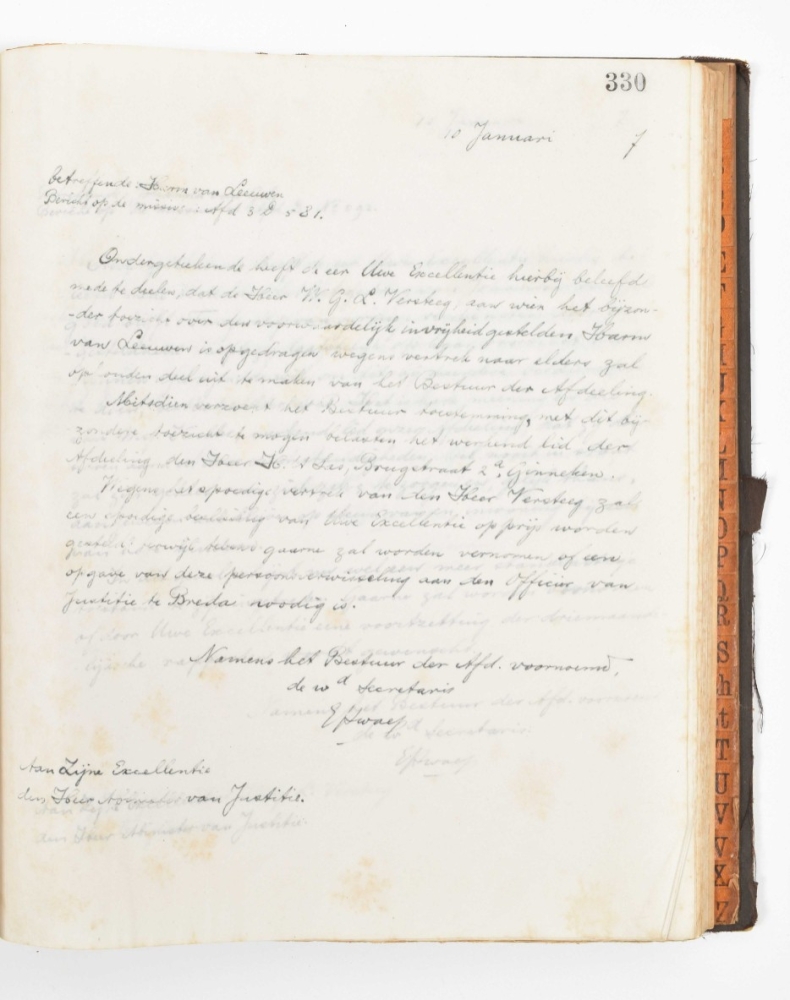 330
10 Januari 7
betreffende: Harm van Leeuwen
Bericht op de nieuwe Afd 3 531.
Ondergeteekende heeft de eer Uwe Excellentie hierbij beleefd
mede te deelen, dat de Heer W. G. L. Versteeg, aan wien het bijzon-
-der toezicht over den voorwaardelijk invrijheidgestelden, Harm
van Leeuwen is opgedragen wegens vertrek naar elders zal
op deel uit te maken van het Bestuur der Afdeeling.
Mitsdien verzoekt het Bestuur toestemming, met dit bij-
zondere toezicht te mogen belasten het werkend lid der
Afdeeling den Heer H. Brugstraat 2d, Ginneken.
Wegens het spoedige vertrek van den Heer Versteeg zal
een spoedige van Uwe Excellentie op prijs worden
gesteld terwijl tevens gaarne zal worden vernomen of een
opgave van deze persoonsverwisseling aan den Officier van
Justitie te Breda noodig is.
Namens het Bestuur der Afd. voornoemd,
de wd Secretaris
Aan Zijne Excellentie
den Heer Minister van Justitie.
E
F
G
I
J
K
L
N
O
P
Q
R
S
T
U
V
X
Z